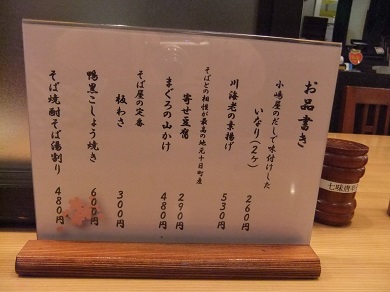 お品書き
小嶋屋のだしで味付けした
いなり(2ヶ) 260円
川海老の素揚げ 530円
そばとの相性が最高の地元十日町産
寄せ豆腐 290円
まぐろの山かけ 480円
そば屋の定番
板わさ 300円
鴨黒こしょう焼き 600円
そば焼酎そば湯割り 480円
七味唐